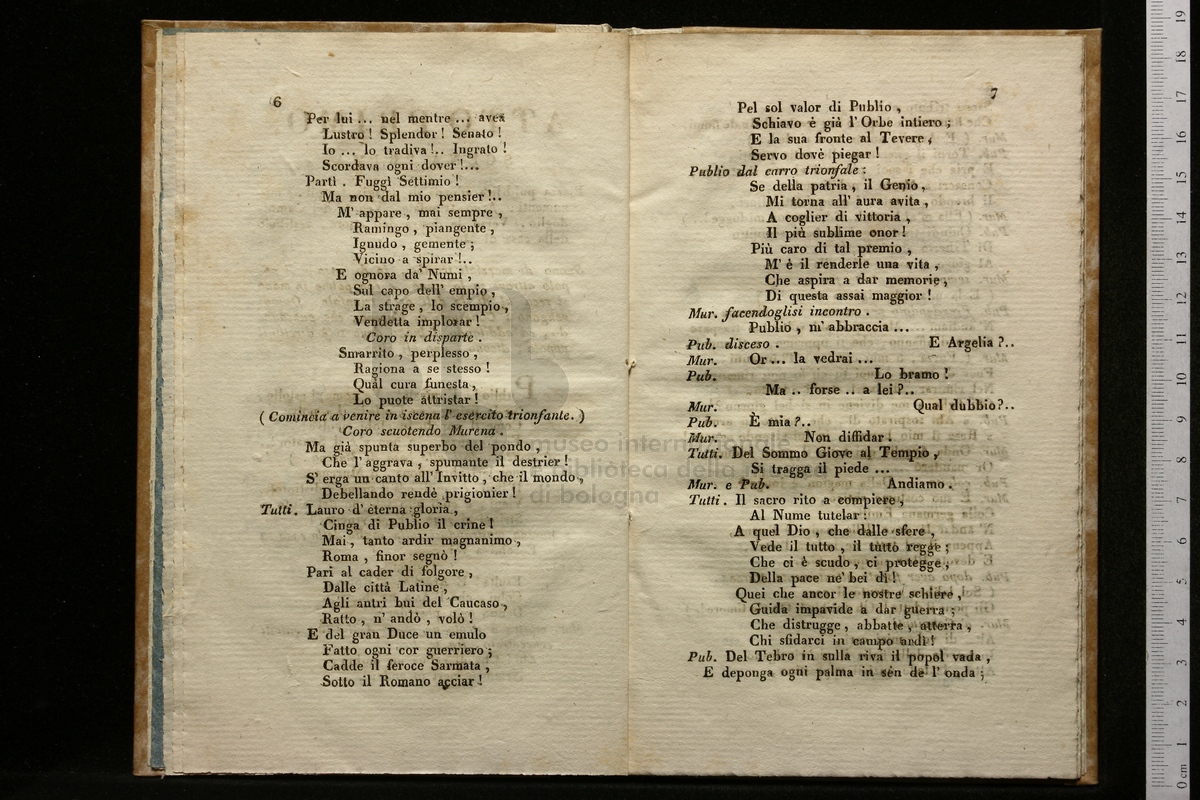 6
Per lui ... nel mentre ... avea
Lustro ! Splendor ! Senato !
Io ... lo tradiva !.. Ingrato !
Scordava ogni dover !...
Partì . Fuggì Settimio !
Ma non dal mio pensier !..
M' appare , mai sempre ,
Ramingo , piangente ,
Ignudo , gemente ;
Vicino a spirar !..
E ognora da' Numi ,
Sul capo dell' empio ,
La strage , lo scempio ,
Vendetta implorar !
Coro in disparte .
Smarrito , perplesso ,
Ragiona a se stesso !
Qual cura funesta ,
Lo puote attristar !
( Comincia a venire in iscena l' esercito trionfante. )
Coro scuotendo Murena .
Ma già spunta superbo del pondo ,
Che l' aggrava , spumante il destrier !
S' erga un canto all' Invitto , che il mondo ,
Debellando rendè prigionier !
Tutti . Lauro d' eterna gloria ,
Cinga di Publio il crine !
Mai , tanto ardir magnanimo ,
Roma , finor segnò !
Pari al cader di folgore ,
Dalle città Latine ,
Agli antri bui del Caucaso ,
Ratto , n' andò , volò !
E del gran Duce un emulo
Fatto ogni cor guerriero ;
Cadde il feroce Sarmata ,
Sotto il Romano acciar !
7
Pel sol valor di Publio ,
Schiavo è già l' Orbe intiero ;
E la sua fronte al Tevere ,
Servo dovè piegar !
Publio dal carro trionfale :
Se della patria , il Genio ,
Mi torna all' aura avita ,
A coglier di vittoria ,
Il più sublime onor !
Più caro di tal premio ,
M' è il renderle una vita ,
Che aspira a dar memorie ,
Di questa assai maggior !
Mur. facendoglisi incontro .
Publio , m' abbraccia ...
Pub. disceso . E Argelia ?..
Mur. Or ... la vedrai ...
Pub. Lo bramo !
Ma .. forse .. a lei ?..
Mur. Qual dubbio ?..
Pub. È mia ?..
Mur. Non diffidar .
Tutti. Del Sommo Giove al Tempio ,
Si tragga il piede ...
Mur. e Pub. Andiamo .
Tutti . Il sacro rito a compiere ,
Al Nume tutelar :
A quel Dio , che dalle sfere ,
Vede il tutto , il tutto regge ;
Che ci è scudo , ci protegge ,
Della pace ne' bei dì !
Quei che ancor le nostre schiere ,
Guida impavide a dar guerra ;
Che distrugge , abbatte , atterra ,
Chi sfidarci in campo ardì !
Pub. Del Tebro in sulla riva il popol vada ,
E deponga ogni palma in sen de l' onda ;
museo internazionale
e biblioteca della
di bologna